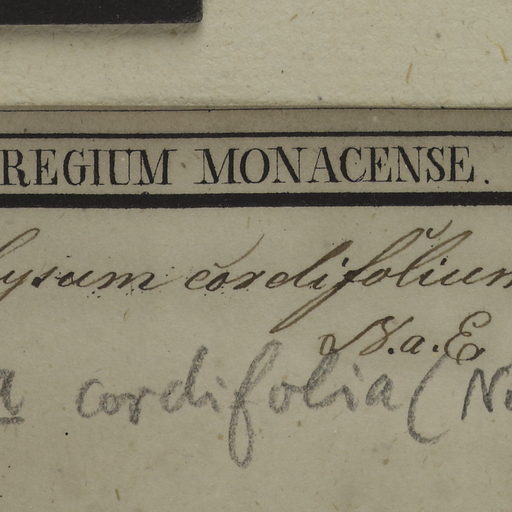 REGIUM MONACENSE.
lysum cordifolium
N.a.E.
a cordifolia (No